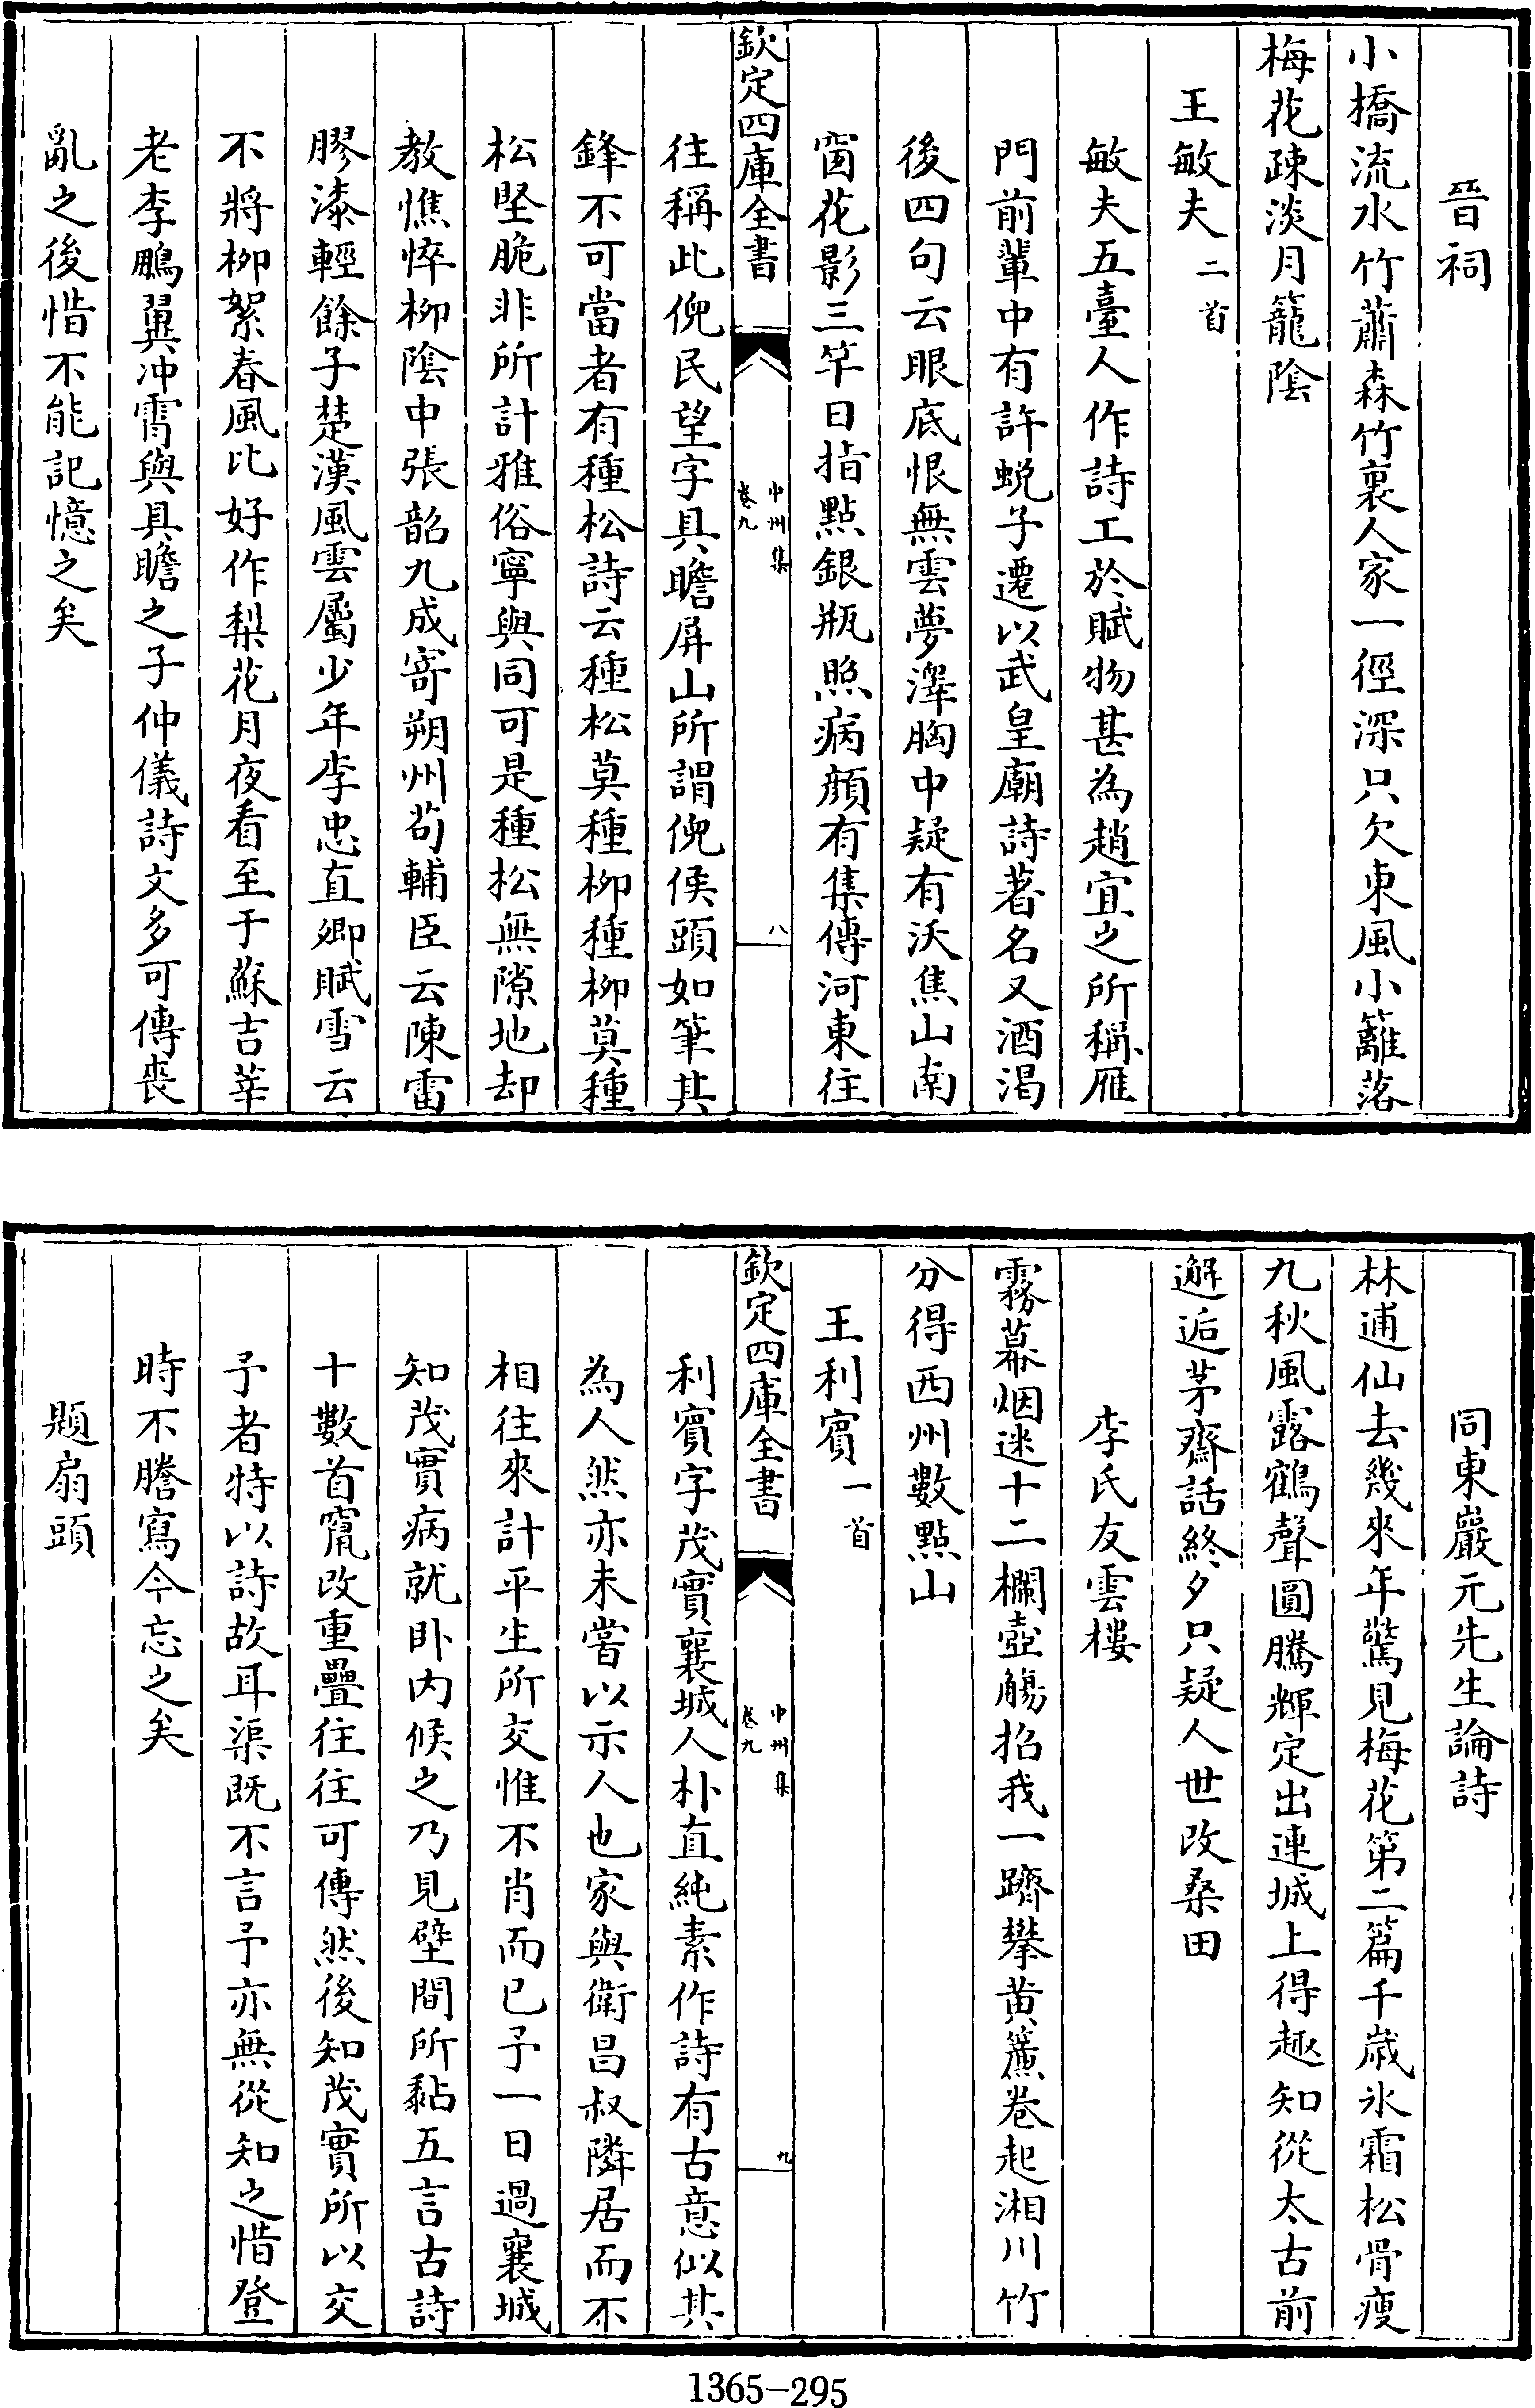 晉祠
小橋流水竹蕭森竹裏人家一徑深只欠東風小籬落
梅花疎淡月籠陰
王敏夫二首
敏夫五臺人作詩工於賦物甚為趙宜之所稱雁
門前輩中有許蛻子遷以武皇廟詩著名又酒渴
後四句云眼底恨無雲夢澤胸中疑有沃焦山南
窗花影三竿日指點銀瓶照病顔有集傳河東往
欽定四庫全書
中州集
卷九
八
往稱此俛民望字具瞻屏山所謂俛侯頭如筆其
鋒不可當者有種松詩云種松莫種柳種柳莫種
松堅脆非所計雅俗寧與同可是種松無隙地却
教憔悴柳陰中張韶九成寄朔州茍輔臣云陳雷
膠漆輕餘子楚漢風雲屬少年李忠直卿賦雪云
不將柳絮春風比好作梨花月夜看至于蘇吉莘
老李鵬翼冲霄與具瞻之子仲儀詩文多可傳喪
亂之後惜不能記憶之矣
同東巖元先生論詩
林逋仙去幾來年驚見梅花第二篇千歲氷霜松骨瘦
九秋風露鶴聲圓騰輝定出連城上得趣知從太古前
邂逅茅齋話終夕只疑人世改桑田
李氏友雲樓
霧幕烟迷十二欄壺觴招我一躋攀黄簾卷起湘川竹
分得西州數點山
王利賓一首
欽定四庫全書
中州集
卷九
九
利賓字茂實襄城人朴直純素作詩有古意似其
為人然亦未嘗以示人也家與衛昌叔隣居而不
相往來計平生所交惟不肖而已予一日過襄城
知茂實病就卧内候之乃見壁間所黏五言古詩
十數首竄改重疊往往可傳然後知茂實所以交
予者特以詩故耳渠既不言予亦無從知之惜登
時不謄寫今忘之矣
題扇頭
1365-295